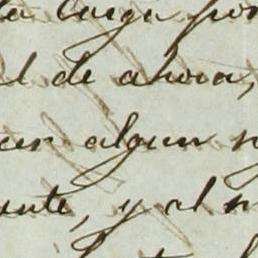 la larga por
l de ahora,
cer algun
ante, y al